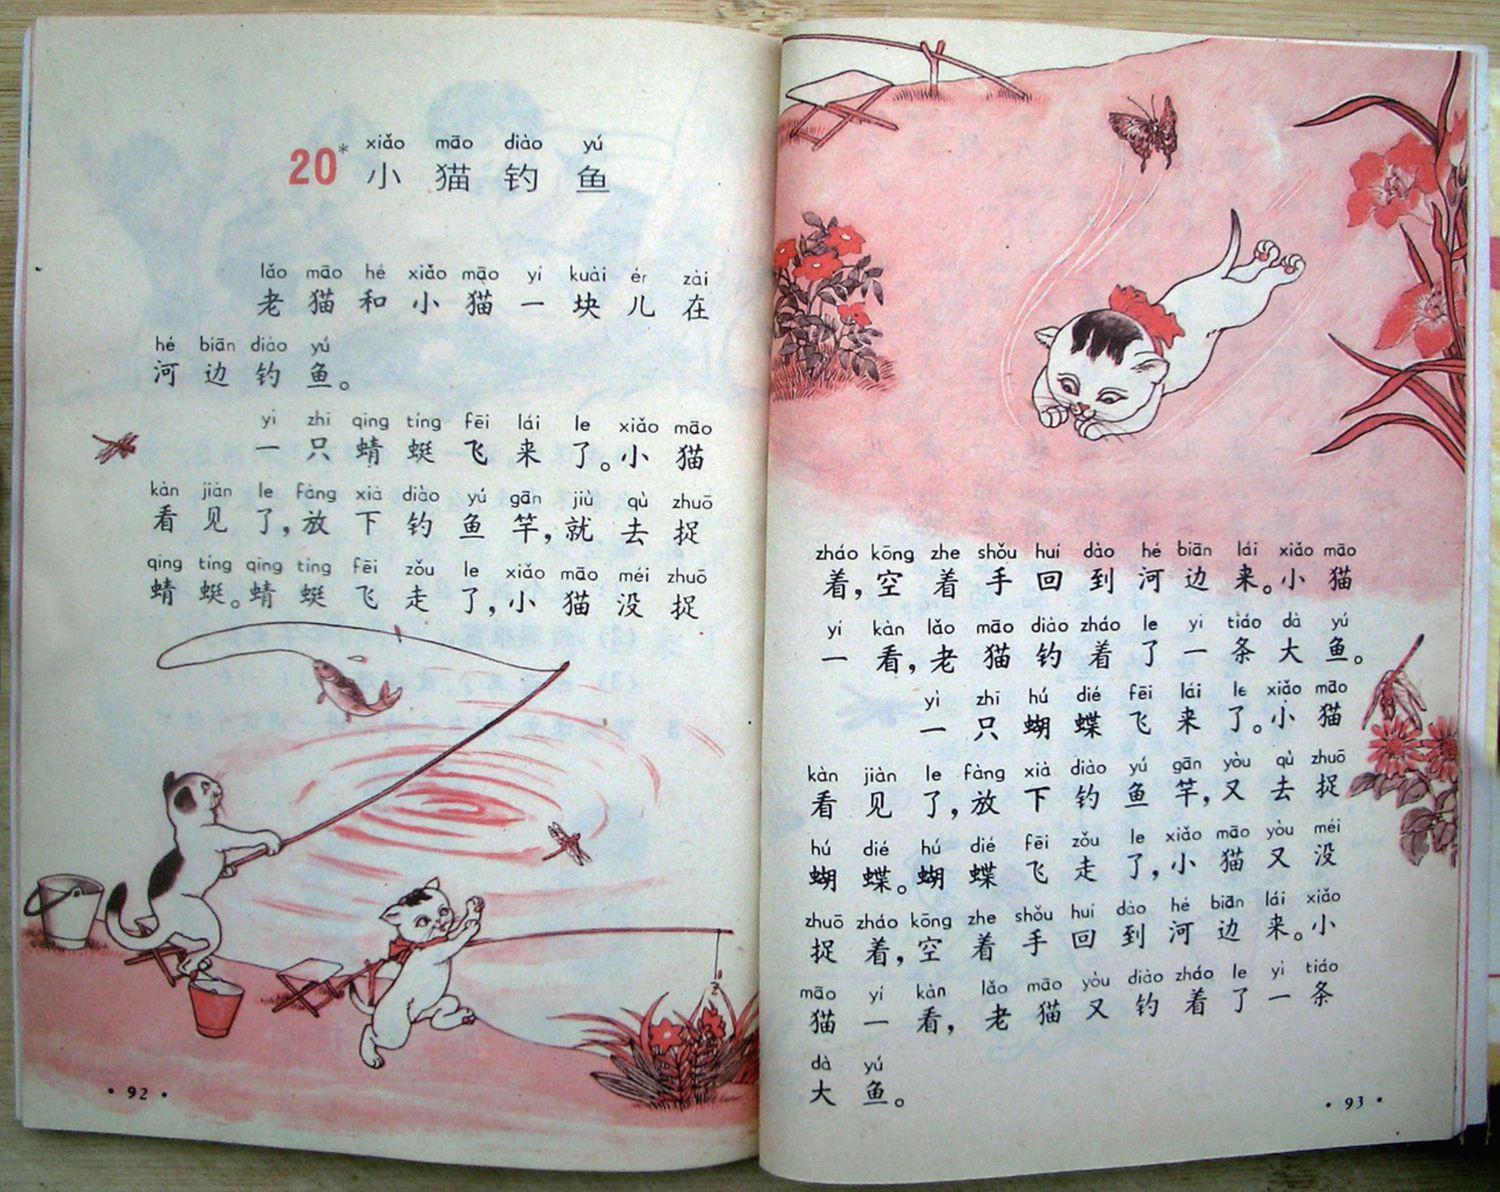 xiǎo māo diào yú
20* 小猫钓鱼
lǎo māo hé xiǎo māo yí kuài ér zài
老猫和小猫一块儿在
hé biān diào yú
河边钓鱼。
yì zhī qīng tíng fēi lái le xiǎo māo
一只蜻蜓飞来了。小猫
kàn jiàn le fàng xià diào yú gān jiù qù zhuō
看见了,放下钓鱼竿,就去捉
qīng tíng qīng tíng fēi zǒu le xiǎo māo méi zhuō
蜻蜓。蜻蜓飞走了,小猫没捉
· 92 ·
zháo kōng zhe shǒu huí dào hé biān lái xiǎo māo
着,空着手回到河边来。小猫
yí kàn lǎo māo diào zháo le yì tiáo dà yú
一看,老猫钓着了一条大鱼。
yì zhī hú dié fēi lái le xiǎo māo
一只蝴蝶飞来了。小猫
kàn jiàn le fàng xià diào yú gān yòu qù zhuō
看见了,放下钓鱼竿,又去捉
hú dié hú dié fēi zǒu le xiǎo māo yòu méi
蝴蝶。蝴蝶飞走了,小猫又没
zhuō zháo kōng zhe shǒu huí dào hé biān lái xiǎo
捉着,空着手回到河边来。小
māo yí kàn lǎo māo yòu diào zháo le yì tiáo
猫一看,老猫又钓着了一条
dà yú
大鱼。
· 93 ·